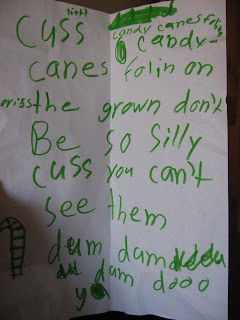 candy canes folin
Cuss candy
canes folin on
the grown don't
Be so silly
cuss you can't
see them
dum dum
dum dooo
ya